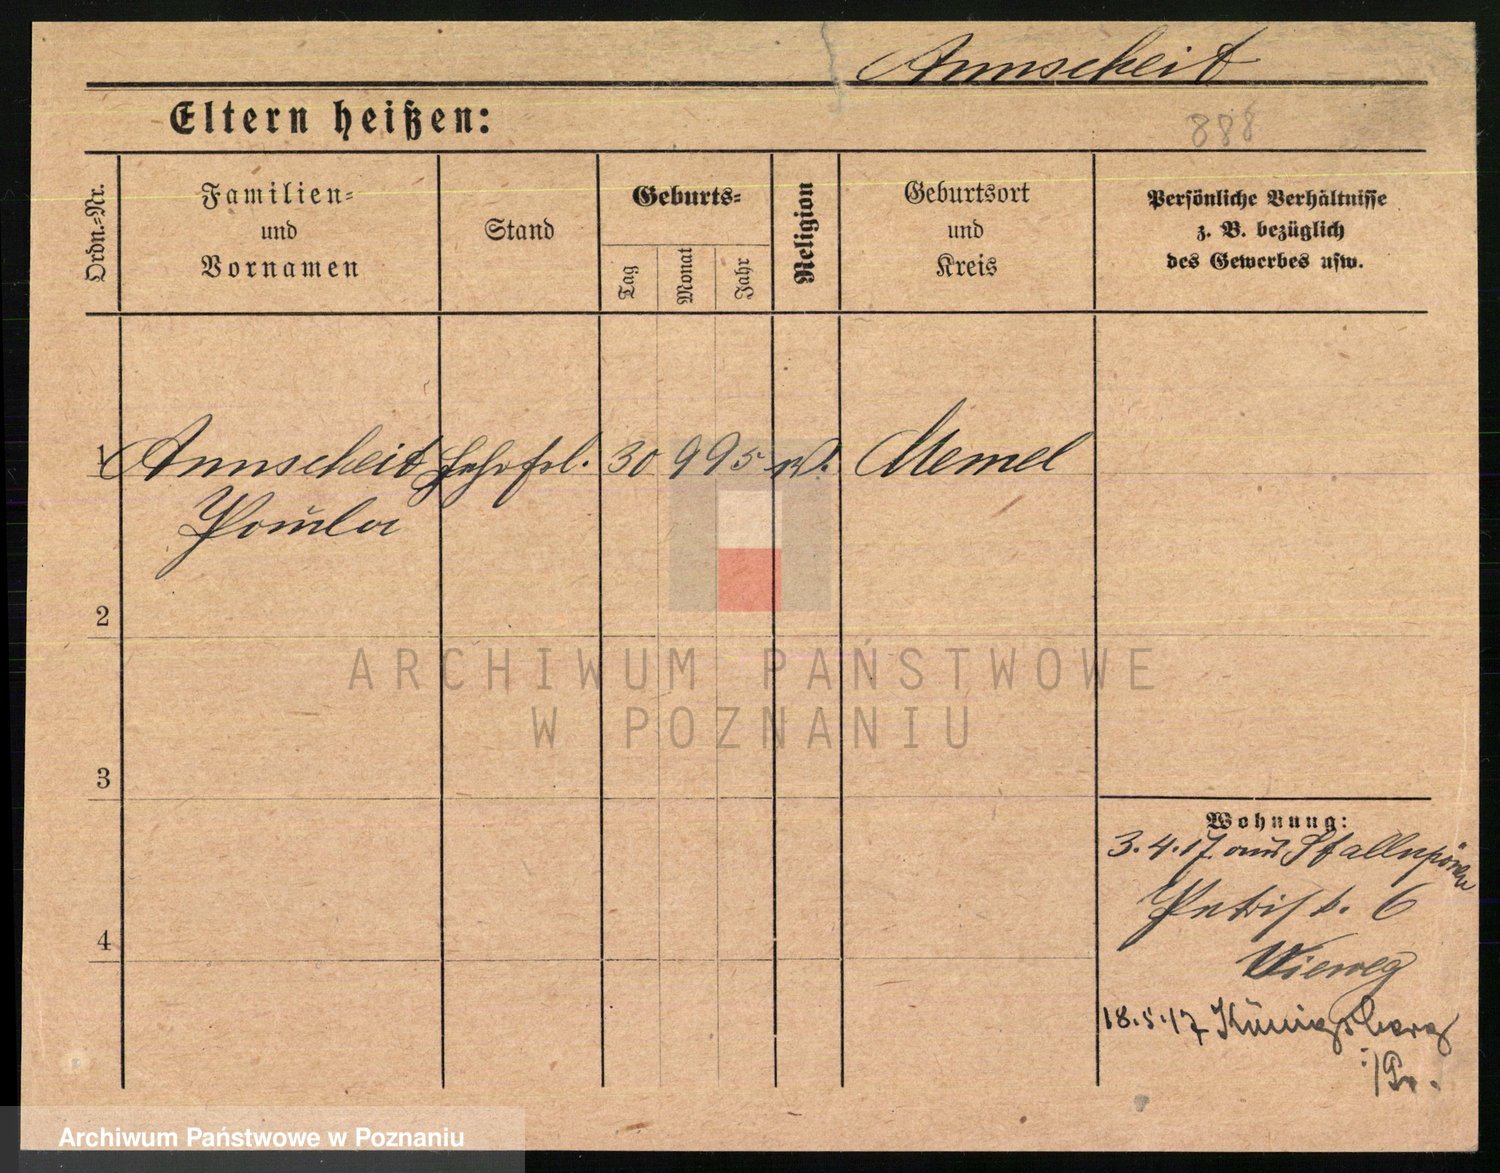 Annscheit
Eltern heißen:
888
Ordn.=Nr.
Familien=
und
Vornamen
Stand
Geburts=
Tag
Monat
Jahr
Religion
Geburtsort
und
Kreis
Persönliche Verhältnisse
z. B. bezüglich
des Gewerbes usw.
1 Annscheit 30 9 95 Memel
Paula
2
3
4
Wohnung:
3.4.17 aus Stallupönen
Petristr. 6
Vieweg
18.5.17 Königsberg
i/Pr.
ARCHIWUM PAŃSTWOWE
W POZNANIU
Archiwum Państwowe w Poznaniu